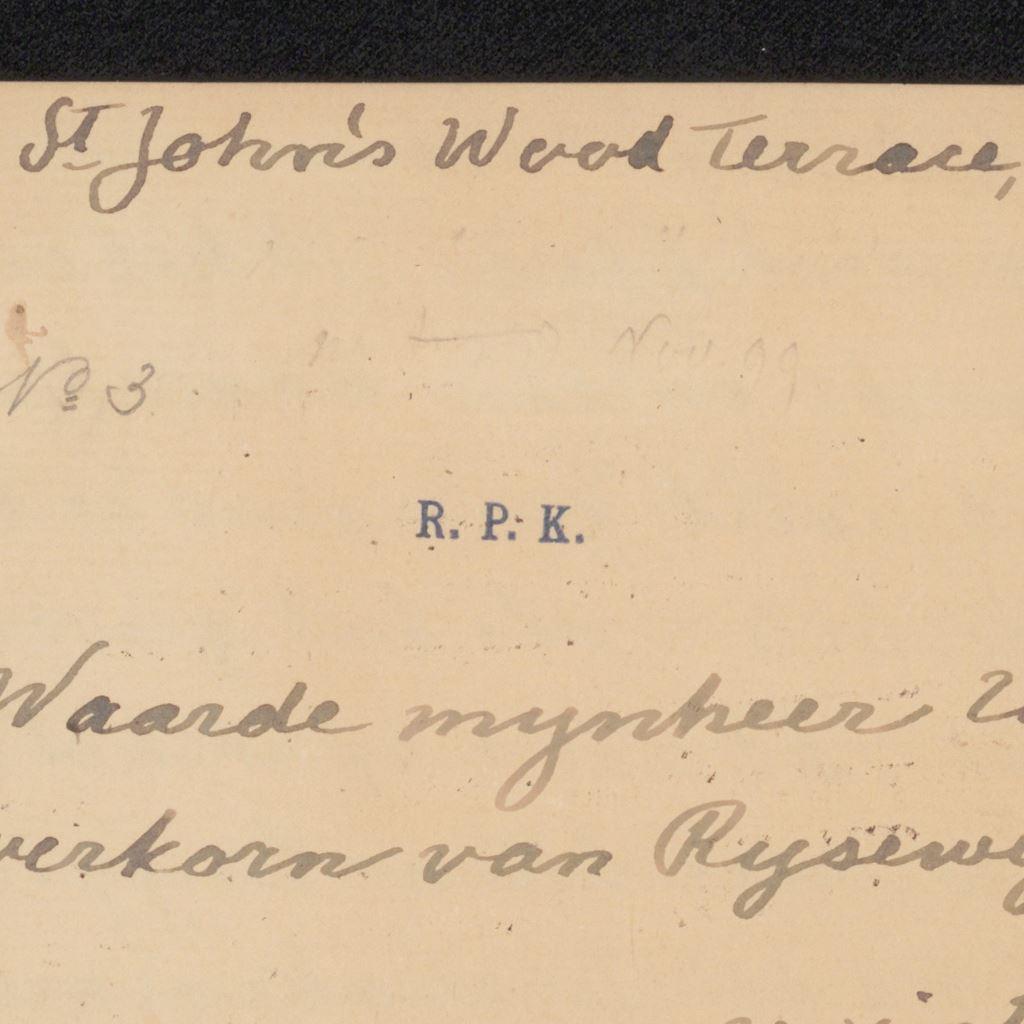 St John's Wood Terrace,
Nov. 99
No 3
R. P. K.
Waarde mynheer
verkorn van Rysewy